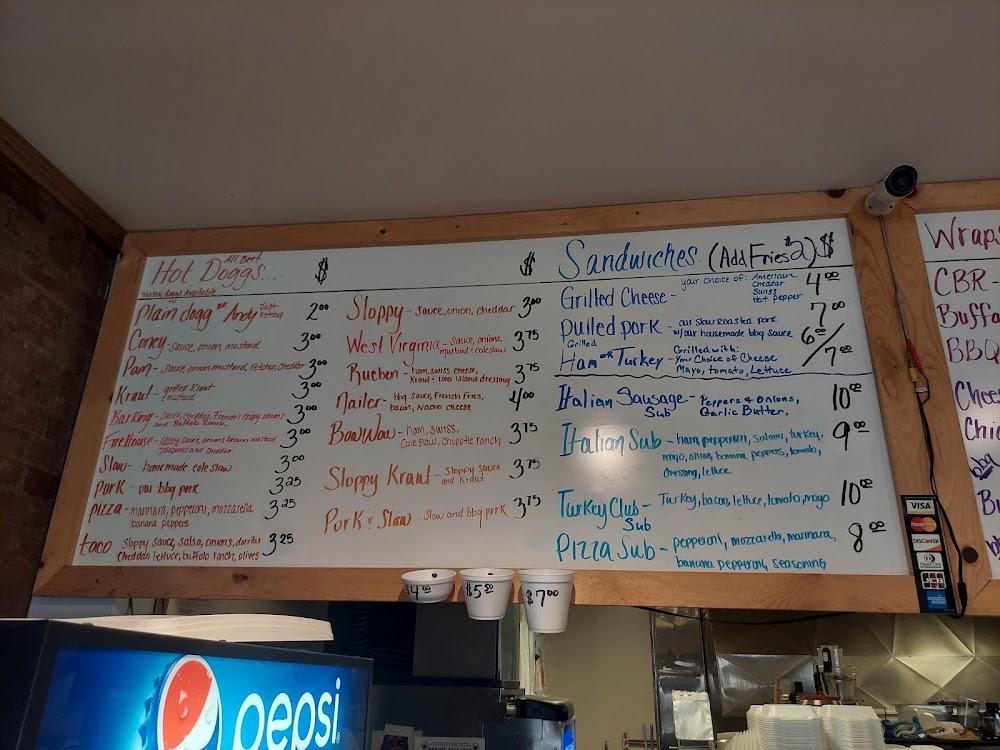 All Beef
Hot Doggs.... $ $
Turkey doggs Available
Plain dogg or Andy Just Ketchup 2.00
Coney - sauce, onion, mustard 3.00
Pam - sauce, onions, mustard, ketchup, cheddar 3.00
Kraut - grilled Kraut 3.00
& mustard
BarKing - sauce, cheddar, French's crispy onions 3.00
and Buffalo Ranch
FireHouse - spicy sauce, onions, brown mustard 3.00
jalapenos and cheddar
Slaw - homemade cole slaw 3.00
Pork - our bbq pork 3.25
Pizza - marinara, pepperoni, mozzarella 3.25
banana peppers
Taco Sloppy sauce, salsa, onions, doritos 3.25
Cheddar, lettuce, buffalo ranch, olives
Sloppy - sauce, onion, cheddar 3.00
West Virginia - sauce, onions, 3.75
mustard & coleslaw
Rueben - ham, swiss cheese, 3.75
Kraut & 1000 island dressing
Nailer - bbq sauce, French Fries, 4.00
bacon, Nacho cheese
BowWow - ham, swiss, 3.75
Coleslaw, chipotle ranch
Sloppy Kraut - Sloppy sauce 3.75
and Kraut
Pork & Slaw - Slaw and bbq pork 3.75
Sandwiches (Add Fries $2) $
Grilled Cheese - your choice of: American 4.00
cheddar
Swiss
Hot pepper
Pulled pork - our slow roasted pork 7.00
w/our housemade bbq sauce
Grilled
Ham or Turkey - Grilled with: 6.00/7.00
Your Choice of Cheese
Mayo, tomato, Lettuce
Italian Sausage - Peppers & Onions, 10.00
Sub Garlic Butter,
Italian Sub - ham, pepperoni, salami, turkey, 9.00
mayo, onion, banana peppers, tomato,
dressing, lettuce
Turkey Club - Turkey, bacon, lettuce, tomato, mayo 10.00
Sub
Pizza Sub - pepperoni, mozzarella, marinara, 8.00
banana pepperoni, seasoning
Wraps
CBR -
Buffa
BBQ
Chees
Chic
bbq
B
$4.00
$5.50
$7.00
VISA
MasterCard
DISCOVER
JCB
pepsi